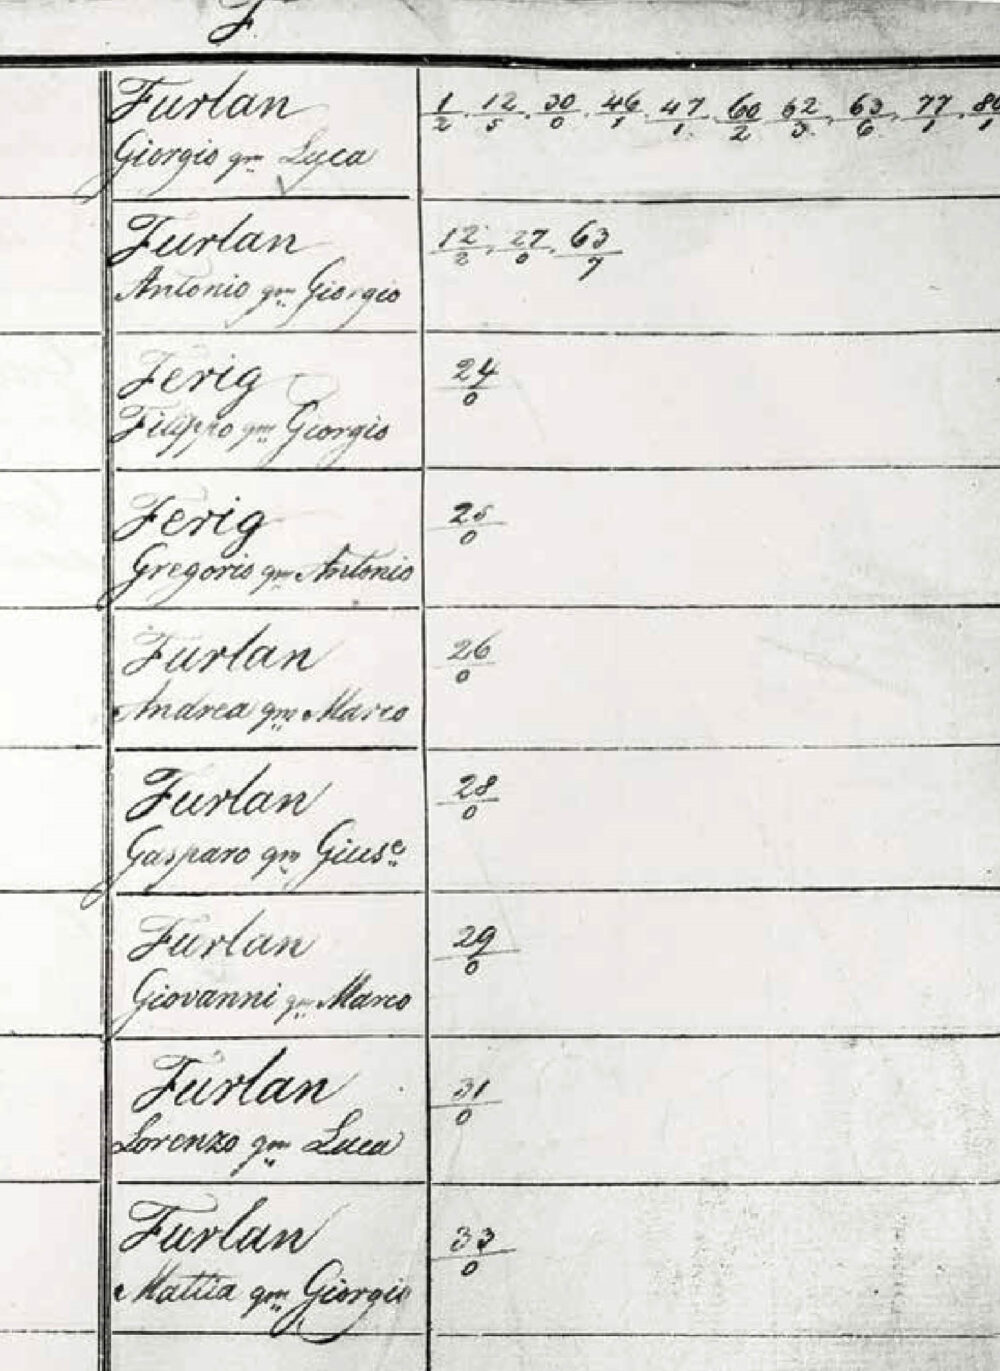 F
Furlan
Giorgio qm Luca
1/2. 12/5. 30/0. 46/1. 47/1. 60/2 62/3. 63/6. 77/1. 
Furlan
Antonio qm Giorgio
12/2. 27/0. 63/7
Ferig
Filippo qm Giorgio
24/0
Ferig
Gregorio qm Antonio
25/0
Furlan
Andrea qm Marco
26/0
Furlan
Gasparo qm Giuse
28/0
Furlan
Giovanni qm Marco
29/0
Furlan
Lorenzo qm Luca
31/0
Furlan
Mattia qm Giorgio
33/0